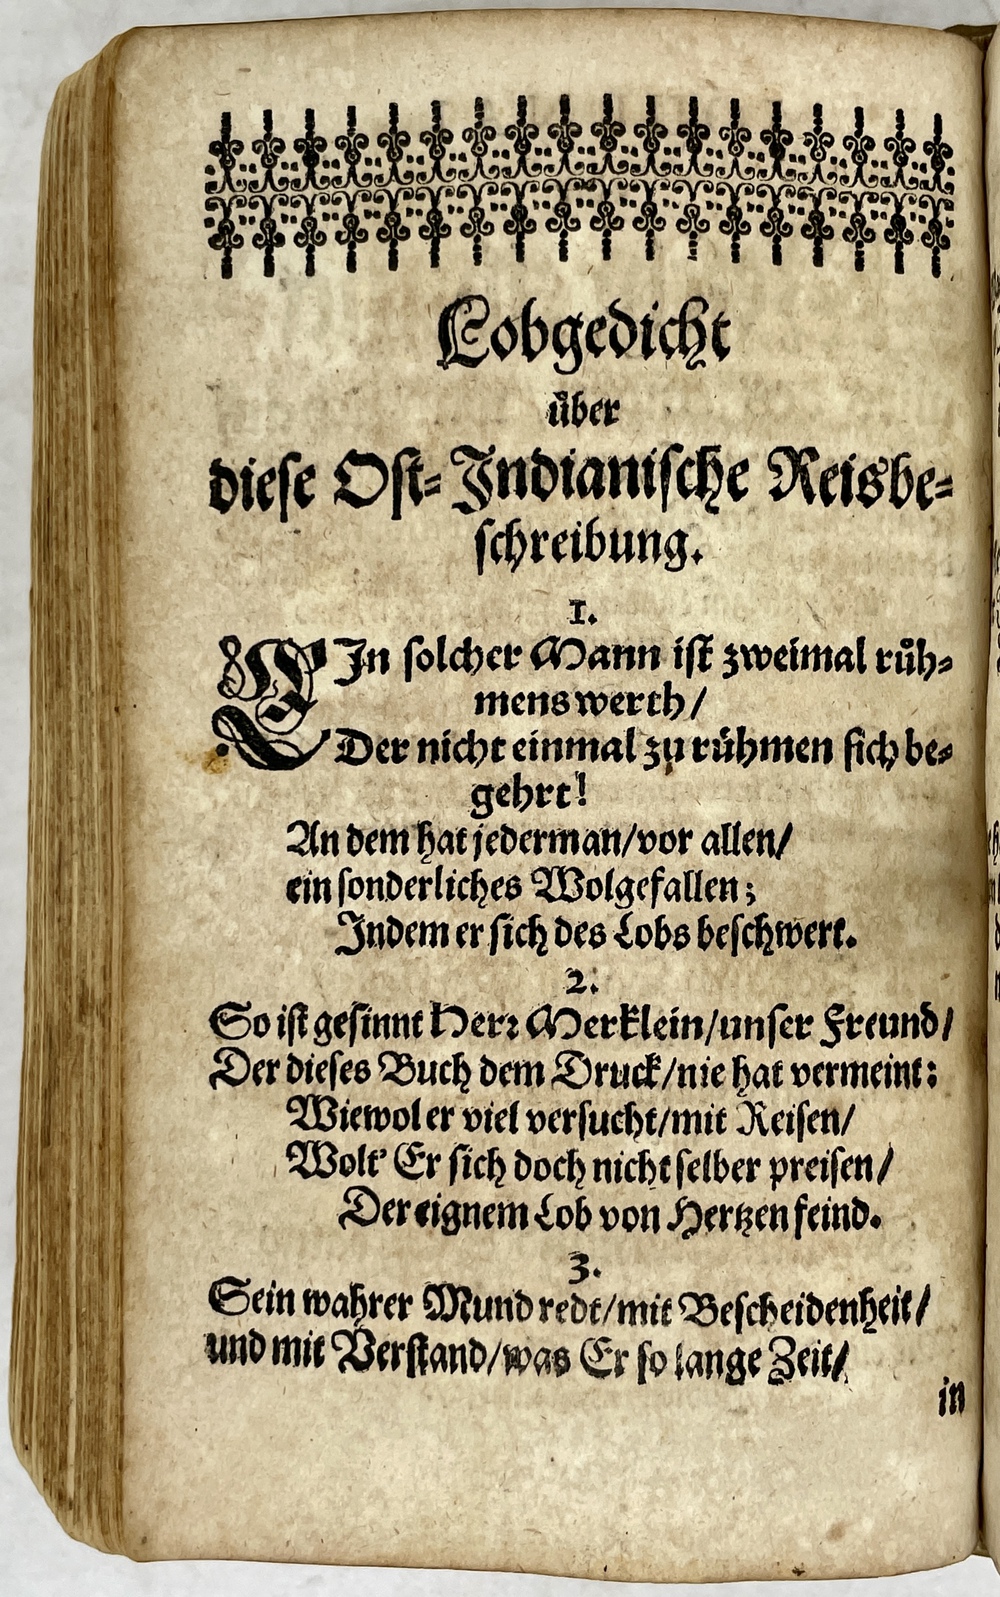 Lobgedicht
uͤber
dieſe Oſt-Indianiſche Reisbe-
ſchreibung.
1.
EIn ſolcher Mann iſt zweimal ruͤh-
mens werth/
Der nicht einmal zu ruͤhmen ſich be-
gehrt!
An dem hat jederman/vor allen/
ein ſonderliches Wolgefallen;
Indem er ſich des Lobs beſchwert.
2.
So iſt geſinnt Herꝛ Merklein/unſer Freund/
Der dieſes Buch dem Druck/nie hat vermeint:
Wiewol er viel verſucht/mit Reiſen/
Wolt' Er ſich doch nicht ſelber preiſen/
Der eignem Lob von Hertzen feind.
3.
Sein wahrer Mund redt/mit Beſcheidenheit/
und mit Verſtand/was Er ſo lange Zeit/
in